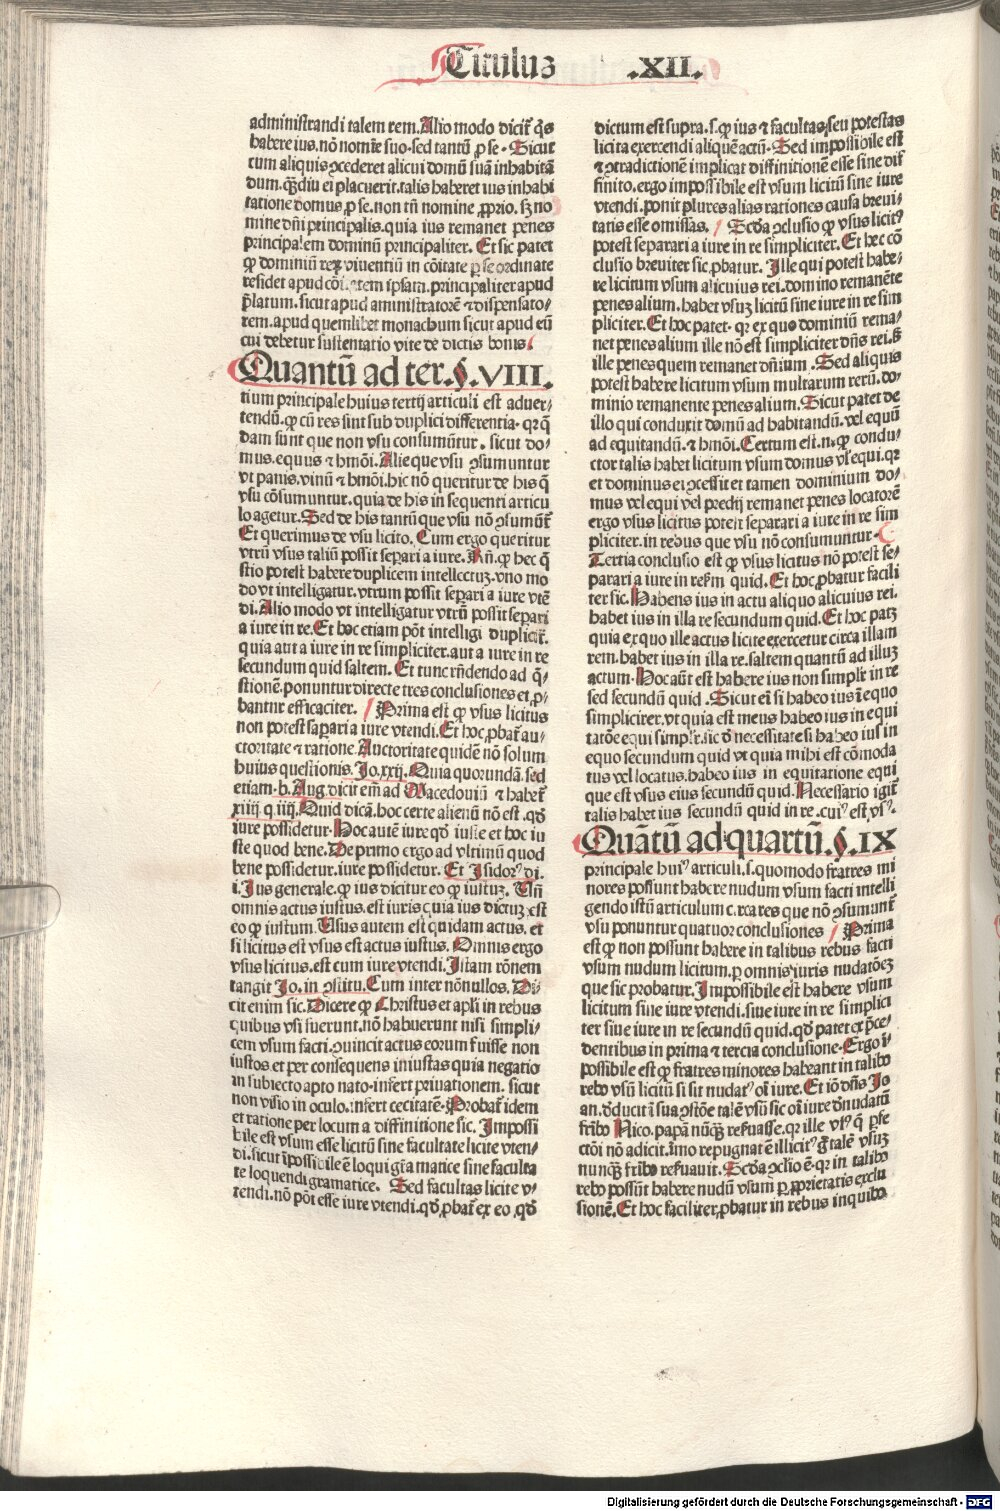 Titulus .XII.
administrandi talem rem. Alio modo dicit̃ q̃s
habere ius. nõ nomĩe suo. sed tantũ ꝓ se. Sicut
cum aliquis ꝯcederet alicui domũ suã inhabitã
dum. qz̃diu ei placuerit. talis haberet ius inhabi
tatione domus, ꝓ se. non tñ nomine ꝓprio. sz no
mine dñi principalis. quia ius remanet penes
principalem dominũ principaliter. Et sic patet
ꝙ dominiũ reꝝ viuentiũ in cõitate ꝑ se ordinate
residet apud cõitatem ipsam. principaliter apud
p̃latum. sicut apud aministratorẽ ⁊ dispensato⸗
rem. apud quemlibet monachum sicut apud eũ
cui debetur sustentatio vite de dictis bonis.
Quantũ ad ter. §. VIII.
tium principale huius tertij articuli est aduer⸗
tendũ. ꝙ cũ res sint sub duplici differentia. qr q̃
dam sunt que non vsu consumũtur. sicut do⸗
mus. equus ⁊ hmõi. Alie que vsu ꝯsumuntur
vt panis. vinũ ⁊ hmõi. hic nõ queritur de his q̃
vsu cõsumuntur. quia de his in sequenti articu
lo agetur. Sed de his tantũ que vsu nõ ꝯsumũt̃
Et querimus de vsu licito. Cum ergo queritur
vtrũ vsus taliũ possit separi a iure. Rñ. ꝙ hec q̃
stio potest habere duplicem intellectuz. vno mo
do vt intelligatur. vtrum possit separi a iure vtẽ
di. Alio modo vt intelligatur vtrũ possit separi
a iure in re. Et hoc etiam põt intelligi duplicit̃.
quia aut a iure in re simpliciter. aut a iure in re
secundum quid saltem. Et tunc rñdendo ad q̃⸗
stionẽ. ponuntur directe tres conclusiones et, ꝓ⸗
bantur efficaciter. Prima est ꝙ vsus licitus
non potest sapari a iure vtendi. Et hoc, ꝓbat̃ au⸗
ctoritate ⁊ ratione. Auctoritate quidẽ nõ solum
huius questionis. Io. xxij. Quia quorundã. sed
etiam. b. Aug. dicit em̃ ad Macedoniũ ⁊ habet̃
xiiij q. iiij. Quid dicã. hoc certe alienũ nõ est. qd̃
iure possidetur. Hoc autẽ iure qd̃ iuste et hoc iu
ste quod bene. De primo ergo ad vltimũ quod
bene possidetur. iure possidetur. Et Isidorꝰ di.
i. Ius generale. ꝙ ius dicitur eo ꝙ iustuz. Vñ
omnis actus iustus. est iuris quia ius dictuz est
eo ꝙ iustum. Vsus autem est quidam actus. et
si licitus est vsus est actus iustus. Omnis ergo
vsus licitus. est cum iure vtendi. Istam rõnem
tangit Io. in ꝯstitu. Cum inter nõnullos. Di⸗
cit enim sic. Dicere ꝙ Christus et apl̃i in rebus
quibus vsi fuerunt. nõ habuerunt nisi simpli⸗
cem vsum facti. ꝯuincit actus eorum fuisse non
iustos et per consequens iniustas quia negatio
in subiecto apto nato. infert priuationem. sicut
non visio in oculo. infert cecitatẽ. Probat̃ idem
et ratione per locum a diffinitione sic. Impossi
bile est vsum esse licitũ sine facultate licite vten⸗
di. sicut ĩpossibile ẽ loqui grãmatice sine faculta
te loquendi gramatice. Sed facultas licite v⸗
tendi. nõ põt esse iure vtendi. qd̃, ꝓbat̃ ex eo, qd̃
dictum est supra. s. ꝙ ius ⁊ facultas, seu potestas
licita exercendi aliquẽ actũ. Sed impossibile est
⁊ ꝯtradictionẽ implicat diffinitionẽ esse sine dif
finito. ergo impossibile est vsum licitũ sine iure
vtendi. ponit plures alias rationes causa breui⸗
tatis esse omissas. Scd̃a ꝯclusio ꝙ vsus licitꝰ
potest separari a iure in re simpliciter. Et hec cõ
clusio breuiter sic, ꝓbatur. Ille qui potest habe⸗
re licitum vsum alicuius rei. domino remanẽte
penes alium. habet vsuz licitũ sine iure in re sim
pliciter. Et hoc patet. qr ex quo dominiũ rema⸗
net penes alium ille nõ est simpliciter dñs rei. s̃
ille penes quem remanet dñium. Sed aliquis
potest habere licitum vsum multarum rerũ. do⸗
minio remanente penes alium. Sicut patet de
illo qui conduxit domũ ad habitandũ. vel equũ
ad equitandũ. ⁊ hmõi. Certum est. n. ꝙ condu⸗
ctor talis habet licitum vsum domus vl̃ equi. qr
et dominus ei ꝯcessit et tamen dominium do⸗
mus vel equi vel predij remanet penes locatorẽ
ergo vsus licitus potest separari a iure in re sim
pliciter. in rebus que vsu nõ consumuntur.
Tertia conclusio est ꝙ vsus licitus nõ potest se⸗
parari a iure in re sm̃ quid. Et hoc, ꝓbatur facili
ter sic. Habens ius in actu aliquo alicuius rei.
habet ius in illa re secundum quid. Et hoc patz
quia ex quo ille actus licite exercetur circa illam
rem. habet ius in illa re. saltem quantũ ad illuz
actum. Hoc aũt est habere ius non simplr̃ in re
sed secundũ quid. Sicut eĩ si habeo ius ĩ equo
simpliciter. vt quia est meus habeo ius in equi
tatõe equi simplr̃. sic d̃ necessitate si habeo ius in
equo secundum quid vt quia mihi est cõmoda
tus vel locatus. habeo ius in equitatione equi
que est vsus eius secundũ quid. Necessario igit̃
talis habet ius secundũ quid in re. cuiꝰ est vsꝰ.
Quãtũ ad quartũ. §. IX
principale huiꝰ articuli. s. quomodo fratres mi
nores possunt habere nudum vsum facti intelli
gendo istũ articulum circa res que nõ ꝯsumunt̃
vsu ponuntur quatuor conclusiones Prima
est ꝙ non possunt habere in talibus rebus facti
vsum nudum licitum. ꝑ omnis iuris nudatõeꝫ
que sic probatur. Impossibile est habere vsum
licitum sine iure vtendi. siue iure in re simplici
ter siue iure in re secundũ quid. qd̃ patet ex p̃ce⸗
dentibus in prima ⁊ tercia conclusione. Ergo ĩ⸗
possibile est ꝙ fratres minores habeant in talibꝰ
rebꝰ vsũ licitũ si sit nudatꝰ oĩ iure. Et iõ dñs Io
an. d̃ducit ĩ sua ꝯstõe talẽ vsũ sic oĩ iure d̃nudatũ
frĩbꝰ Nico. papã nũq̃ẓ reẜuasse. qr ille vsꝰ q̃ ꝑfe
ctõi nõ adicit. ĩmo repugnat ẽ illicitꝰ g̃ talẽ vsuz
nunq̃ẓ frĩbꝰ reẜuauit. Scd̃a ꝯclõ ẽ. qr in talibꝰ
rebꝰ possũt habere nudũ vsum ꝑ ꝓprietatis exclu
sionẽ. Et hoc faciliter, ꝓbatur in rebus in quibꝰ
Digitalisierung gefördert durch die Deutsche Forschungsgemeinschaft - DFG